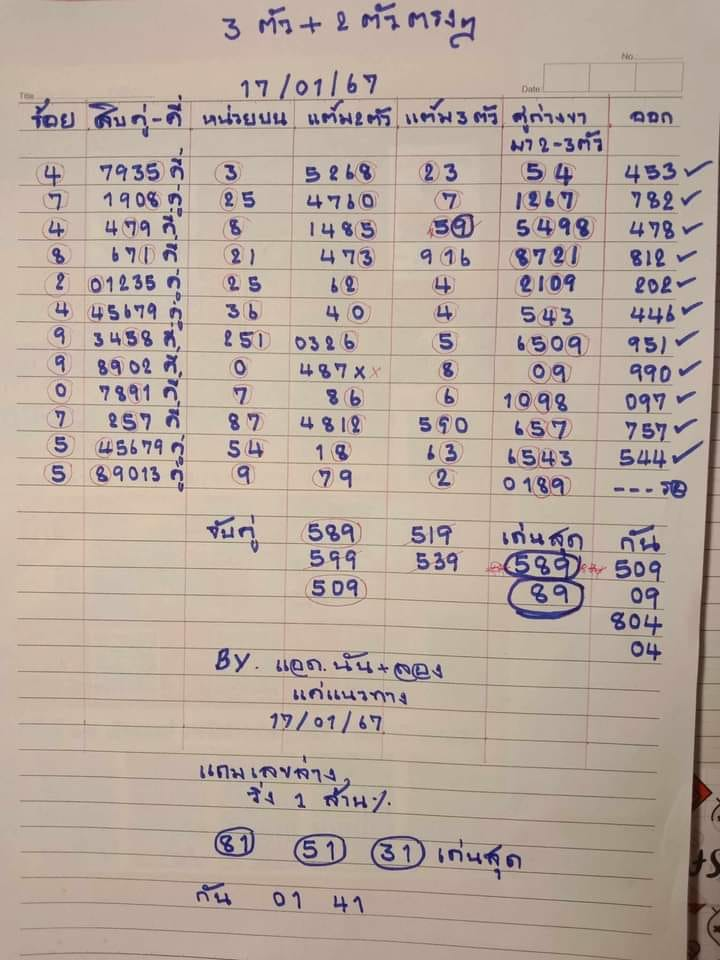 3 ตัว + 2 ตัวตรงๆ
No.
Title
17/01/67
Date
ร้อย สิบคู่-คี่ หน่วยบน แต้ม2ตัว แต้ม3ตัว คู่ถ่างขา ออก
มา2-3ตัว
4 7935 คี่ 3 5268 23 54 453 ✓
7 1908 คู่ 25 4760 7 1267 782 ✓
4 479 คี่ 8 1485 59 5498 478 ✓
8 671 คี่ 21 473 916 8721 812 ✓
2 01235 คู่ 25 62 4 2109 202 ✓
4 45679 คู่ 36 40 4 543 446 ✓
9 3458 คี่ 251 0326 5 6509 951 ✓
9 8902 คี่ 0 487xx 8 09 990 ✓
0 7891 คี่ 7 86 6 1098 097 ✓
7 257 คี่ 87 4812 590 657 757 ✓
5 45679 คู่ 54 18 63 6543 544 ✓
5 89013 คู่ 9 79 2 0189 ---
จับคู่ 589 519 เด่นสุด กัน
599 539 589 509
509 89 09
804
04
BY. แอด.นัน+ลอง
แค่แนวทาง
17/01/67
แถมเลขล่าง
วิ่ง 1 ล้าน%
81 51 31 เด่นสุด
กัน 01 41